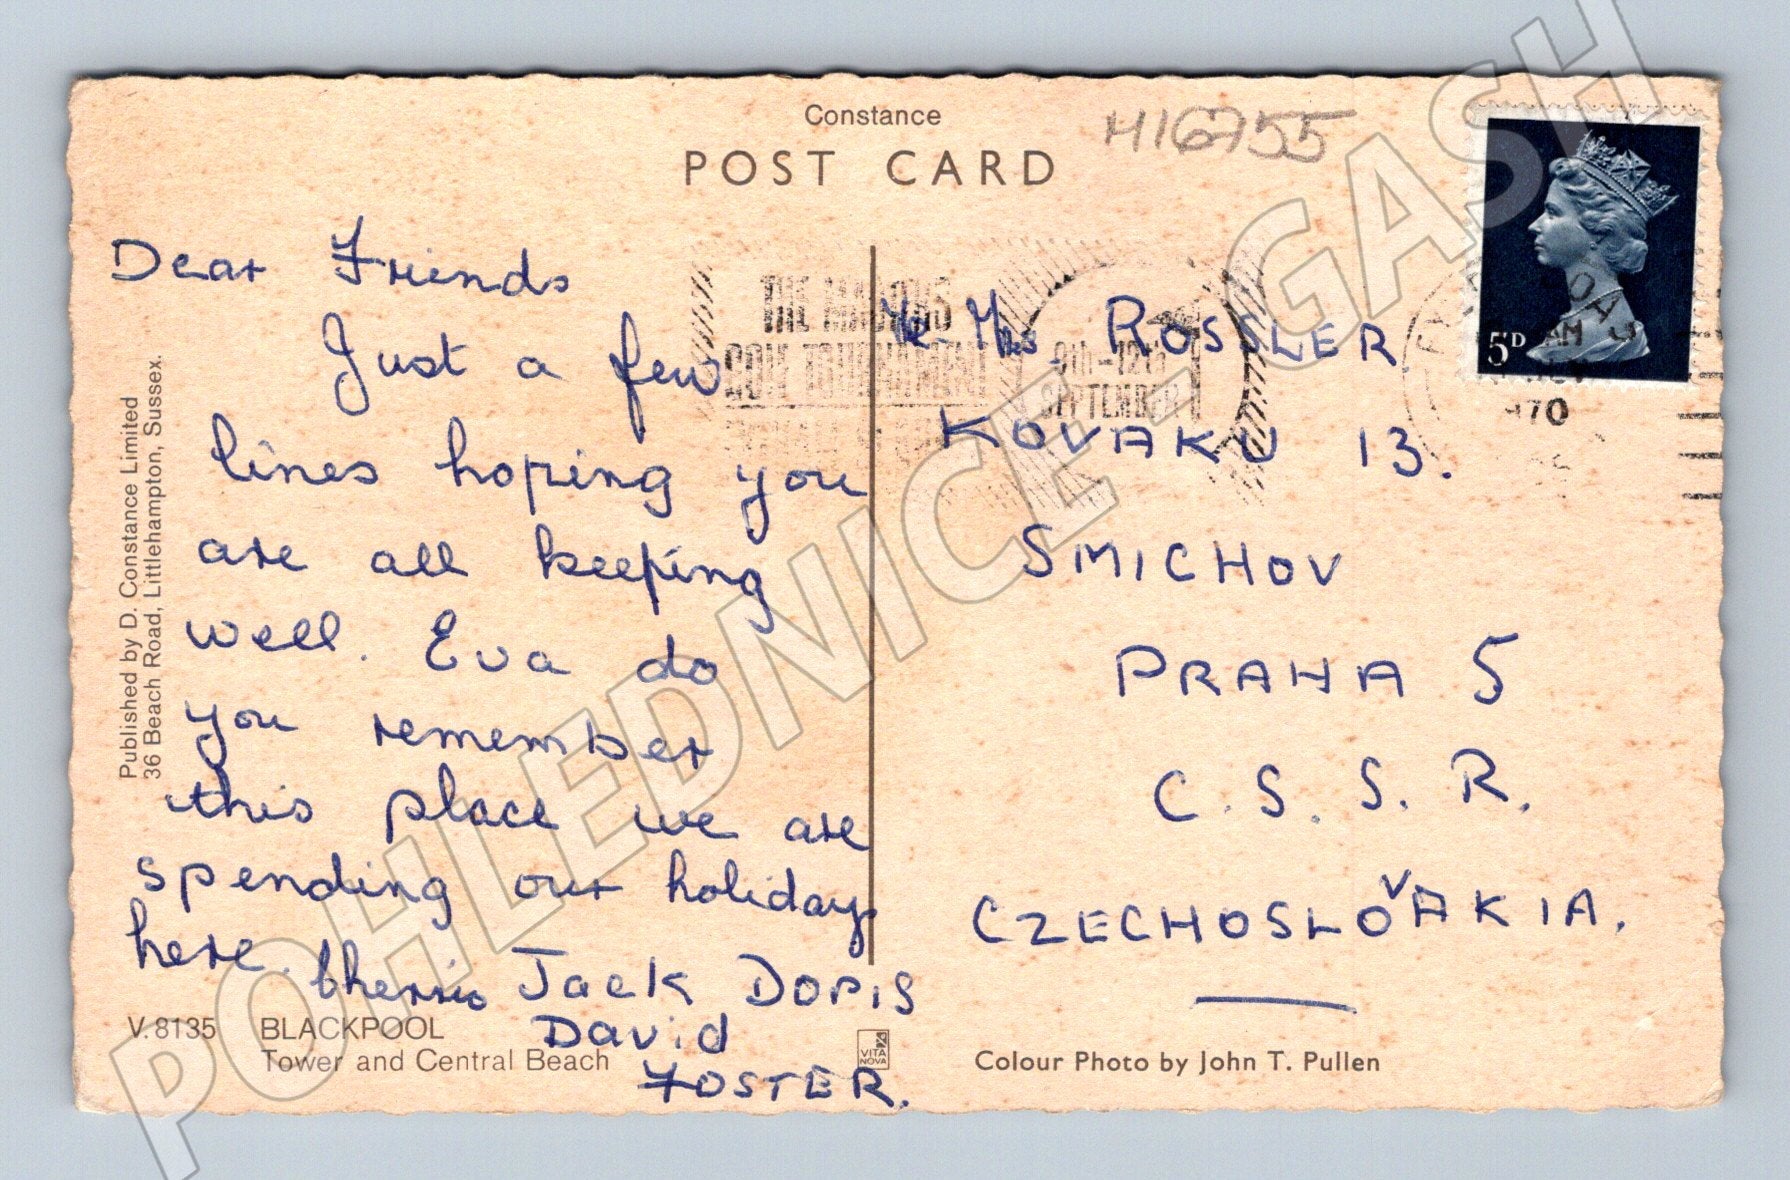 Constance
POST CARD
H16755
Dear Friends
Just a few
lines hoping you
are all keeping
well. Eva do
you remember
this place we are
spending our holiday
here. Cherrio Jack DORIS
David
FOSTER.
Mr. Mrs. ROSSLER.
KOVAKU 13.
SMICHOV
PRAHA 5
C. S. S. R.
CZECHOSLOVAKIA.
5D
AM
1970
9th-12th
SEPTEMBER
Published by D. Constance Limited
36 Beach Road, Littlehampton, Sussex.
V.8135 BLACKPOOL
Tower and Central Beach
VITA
NOVA
Colour Photo by John T. Pullen
POHLEDNICE - GASH